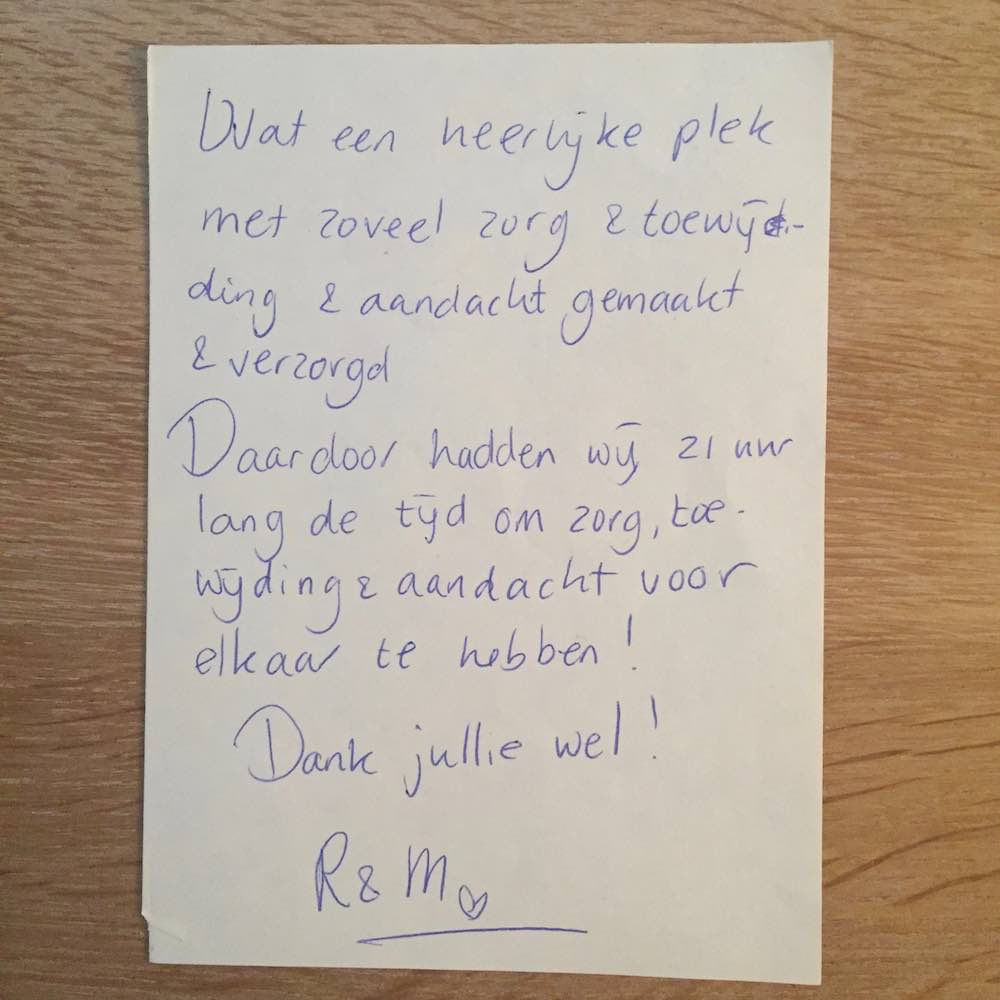 Wat een heerlijke plek
met zoveel zorg & toewij-
ding & aandacht gemaakt
& verzorgd
Daardoor hadden wij 21 uur
lang de tijd om zorg, toe-
wijding & aandacht voor
elkaar te hebben!
Dank jullie wel!
R & M ♡